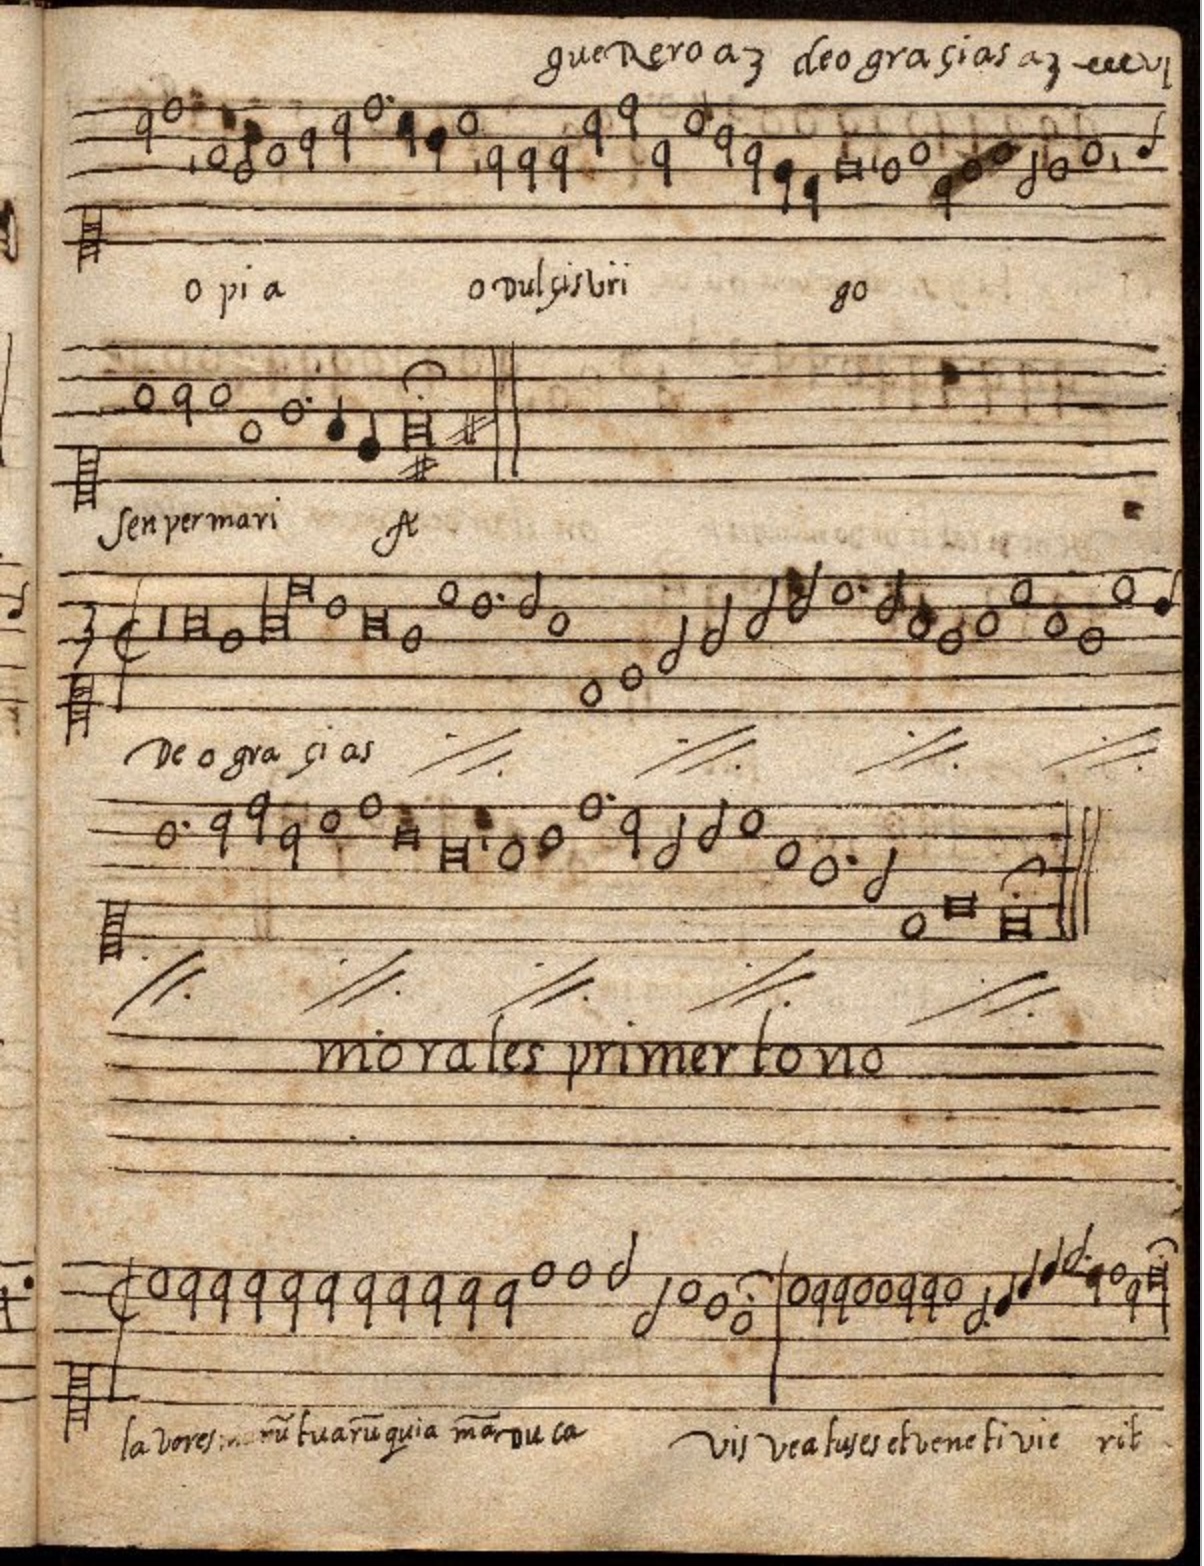 gueRero a3 deo graçias a3
o pi a o Dulçis viri go
Sen per mari A
De o gra çi as
morales primer tono
la vores tuarū quia māDuca vis veatuses et vene ti vie rit